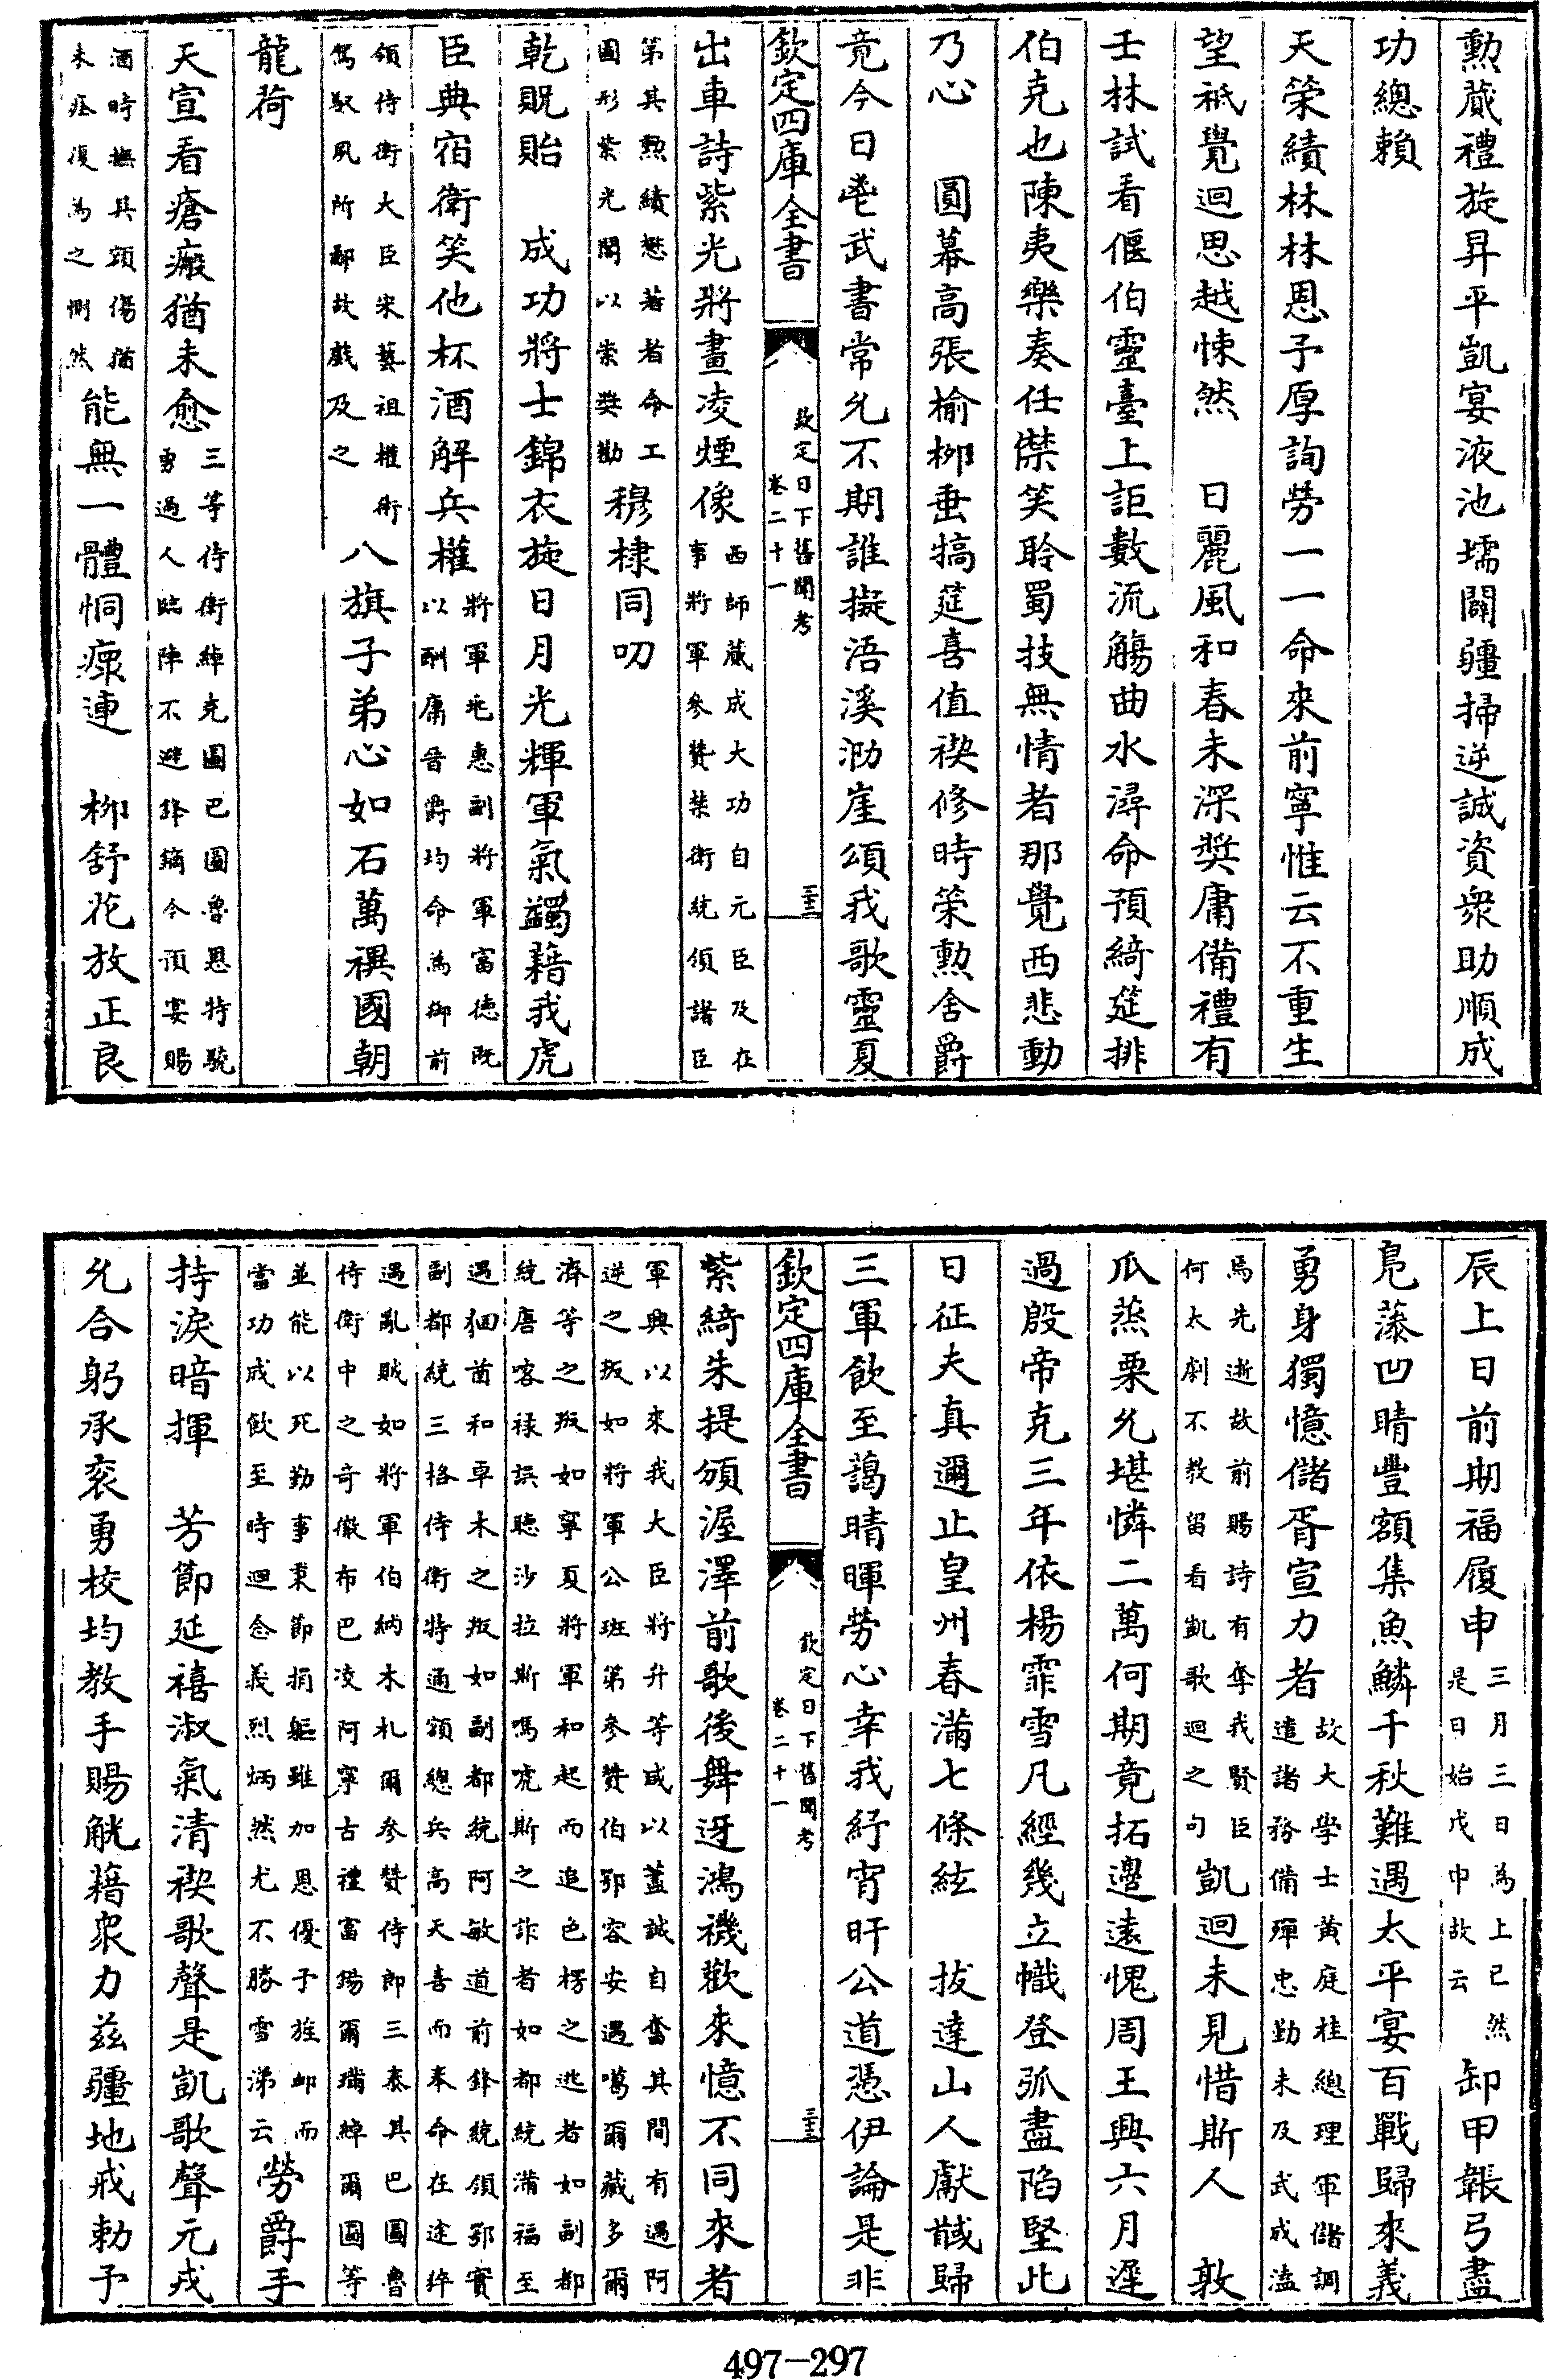 勲蕆禮旋昇平凱宴液池壖闢疆掃逆誠資衆助順成
功總賴
天榮績林林恩予厚詢勞一一命來前寧惟云不重生
望祇覺迴思越悚然　日麗風和春未深奬庸備禮有
壬林試看偃伯靈臺上詎數流觴曲水潯命預綺筵排
伯克也陳夷樂奏任㑅笑聆蜀技無情者那覺西悲動
乃心　圓幕高張榆柳垂犒筵喜值禊修時榮勲舍爵
竟今日武書常允不期誰擬浯溪泐崖頌我歌靈夏
欽定四庫全書
欽定日下舊聞考
卷二十一
三十二
出車詩紫光將畫凌煙像
西師蕆成大功自元臣及在
事將軍參贊禁衛統領諸臣
第其勲績懋著者命工
圖形紫光閣以崇奬勸
穆棣同叨
乾貺貽　成功將士錦衣旋日月光輝軍氣蠲藉我虎
臣典宿衛笑他杯酒解兵權
將軍兆惠副將軍富德既
以酬庸晉爵均命為御前
領侍衛大臣宋藝祖權術
駕馭夙所鄙故戲及之
八旗子弟心如石萬禩國朝
龍荷
天宣看瘡瘢猶未愈
三等侍衛綽克圖巴圖魯恩特號
勇過人臨陣不避鋒鏑今預宴賜
酒時撫其頭傷猶
未痊復為之惻然
能無一體恫瘝連　柳舒花放正良
辰上日前期福履申
三月三日為上巳然
是日始戊申故云
卸甲韔弓盡
鳧藻凹睛豐額集魚鱗千秋難遇太平宴百戰歸來義
勇身獨憶儲胥宣力者
故大學士黃庭桂總理軍儲調
遣諸務備殫忠勤未及武成溘
焉先逝故前賜詩有奪我賢臣
何太劇不教留看凱歌迴之句
凱迴未見惜斯人　敦
瓜蒸栗允堪憐二萬何期竟拓邊遠愧周王興六月遲
過殷帝克三年依楊霏雪凡經幾立幟登弧盡陷堅此
日征夫真邇止皇州春滿七條絃　拔達山人獻馘歸
三軍飲至藹晴暉勞心幸我紓宵旰公道憑伊論是非
欽定四庫全書
欽定日下舊聞考
卷二十一
三十三
紫綺朱提頒渥澤前歌後舞迓鴻禨歡來憶不同來者
軍興以來我大臣將升等咸以藎誠自奮其間有遇阿
逆之叛如將軍公班第參贊伯鄂容安遇噶爾藏多爾
濟等之叛如寧夏將軍和起而追色楞之逃者如副都
統唐喀祿誤聽沙拉斯嗎唬斯之詐者如都統滿福至
遇狪酋和卓木之叛如副都統阿敏道前鋒統領鄂實
副都統三格侍衛特通額總兵高天喜而奉命在途猝
遇亂賊如將軍伯納木札爾參贊侍郎三泰其巴圖魯
侍衛中之奇徹布巴凌阿寧古禮富錫爾瑞綽爾圖等
並能以死勤事秉節捐軀雖加恩優予旌卹而
當功成飲至時迴念義烈炳然尤不勝雪涕云
勞爵手
持淚暗揮　芳節延禧淑氣清禊歌聲是凱歌聲元戎
允合躬承衮勇校均教手賜觥藉衆力兹疆地戒勅予
497-297